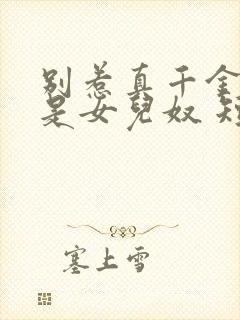 别惹真千金
是女儿奴 短
塞上雪